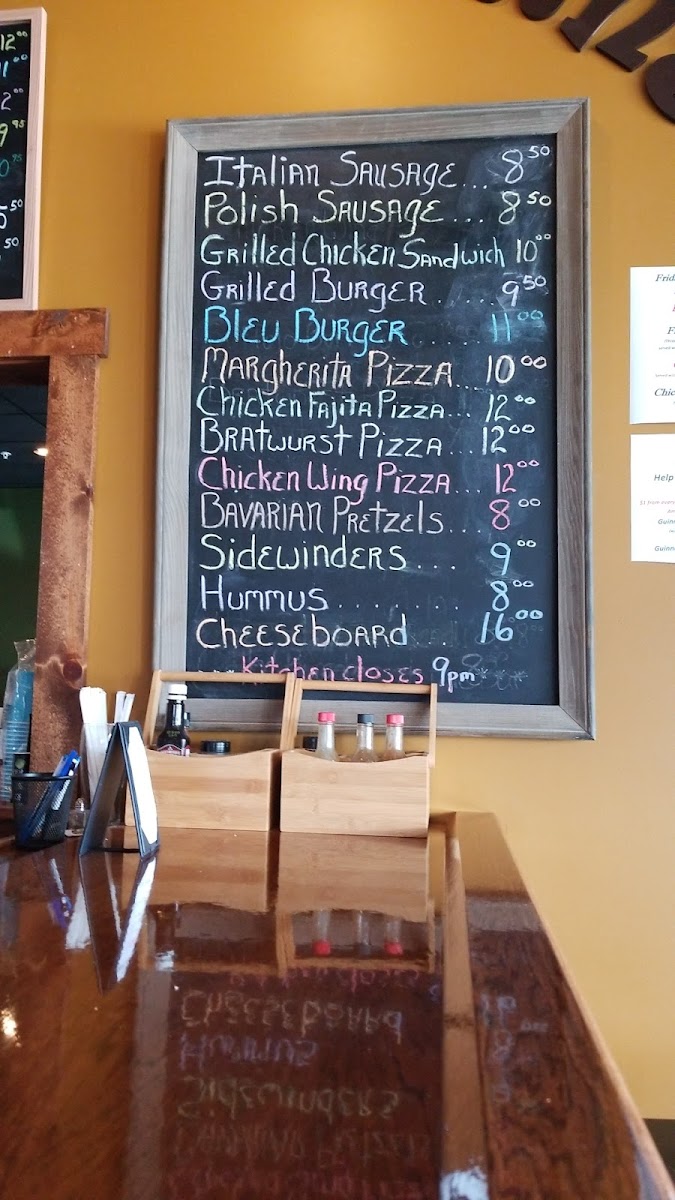 12⁰⁰
9⁹⁵
Italian Sausage... 8⁵⁰
Polish Sausage... 8⁵⁰
Grilled Chicken Sandwich 10⁰⁰
Grilled Burger...... 9⁵⁰
Bleu Burger...... 11⁰⁰
Margherita Pizza... 10⁰⁰
Chicken Fajita Pizza... 12⁰⁰
Bratwurst Pizza... 12⁰⁰
Chicken Wing Pizza... 12⁰⁰
Bavarian Pretzels... 8⁰⁰
Sidewinders.... 9⁰⁰
Hummus........ 8⁰⁰
Cheeseboard 16⁰⁰
Kitchen closes 9pm
Frid
Chic
Help
Guinn
Guinn